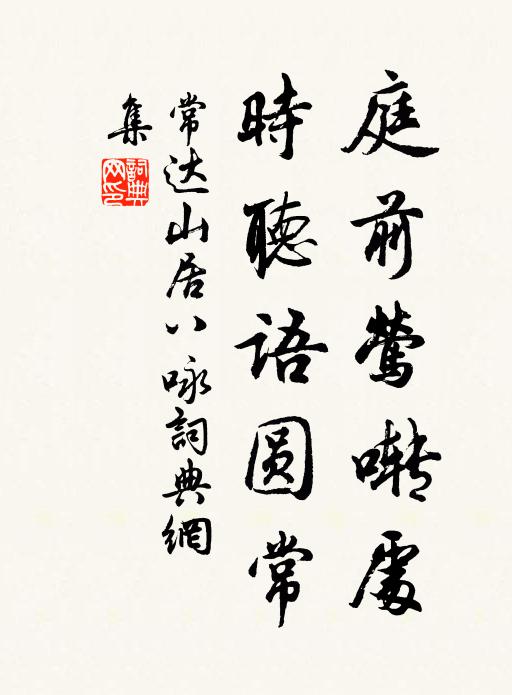 庭前鶯啭處
時聽語圆常
常达山居八咏詞典網
集
詞典网印